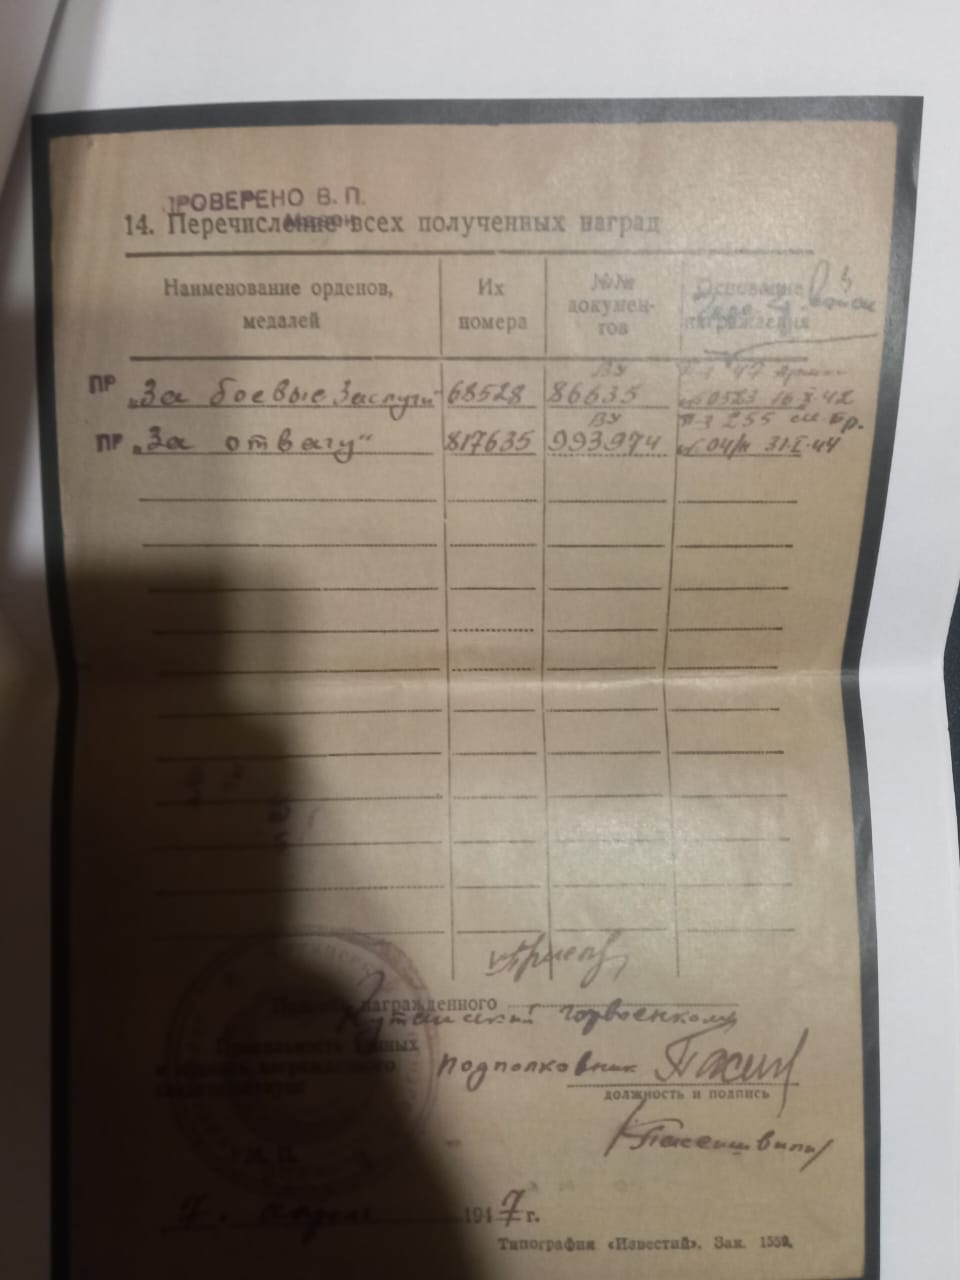 ПРОВЕРЕНО В. П.
14. Перечисление всех полученных наград
Наименование орденов, медалей
Их номера
№№ документов
Основание награждения
ПР „За боевые заслуги“ 68528 ВУ 86635 № 0523 16.X.42
ПР „За отвагу“ 817635 ВУ 993974 255 № 04/н 31.I.44
Подпись награжденного
Кутаисский горвоенком
Правильность данных
и подпись награжденного
Подполковник
должность и подпись
М. П.
7. 1947 г.
Типография «Известий». Зак. 1550.